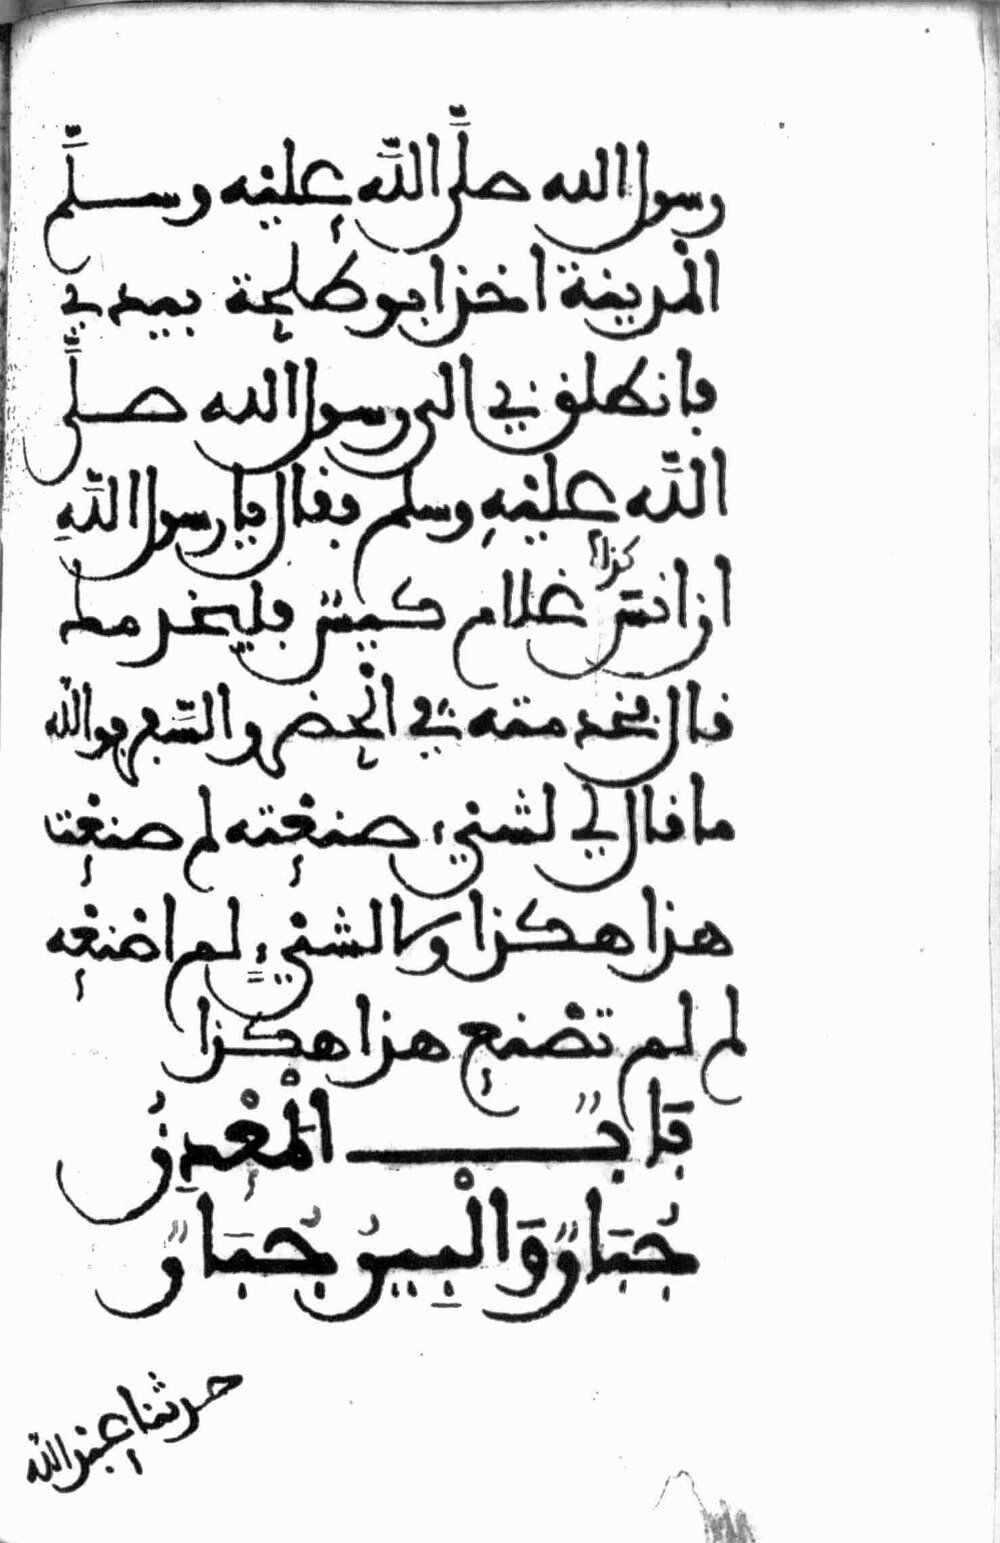 رسول الله صلَّى اللَّه عليْه وسلَّم
المدينة اخذ ابو طلحة بيدي
فانطلق بي الى رسول الله صلَّى
اللَّه عليْهِ وسلم فقال يا رسول اللَّهِ
ان انس غلام كيس فليخدمك
كذا
قال فخدمته في الْحضر والسَّفر فوالله
ما قال لي لشيْء صنعْته لم صنعْت
هذا هكذا ولا لشيْءٍ لم اصْنعْه
لم لم تصْنع هذا هكذا
بَابٌ الْمَعْدِنُ
جُبَارٌ وَالْبِيرُ جُبَارٌ
حدثنا عبد الله